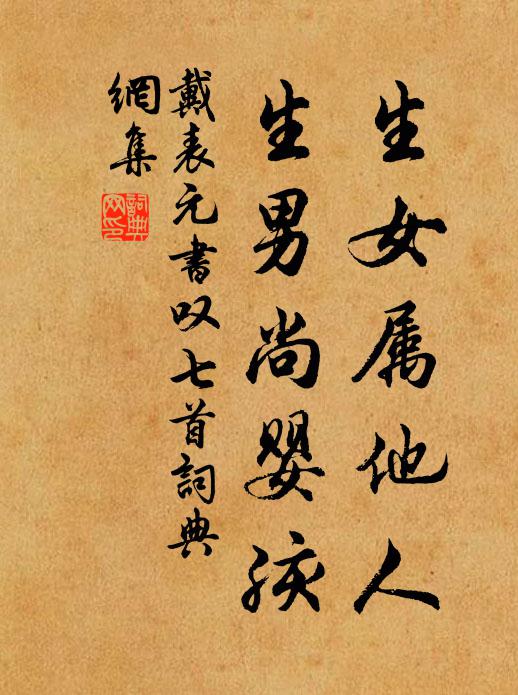 生女属他人
生男尚婴孩
戴表元書叹七首詞典
網集
詞典
网印